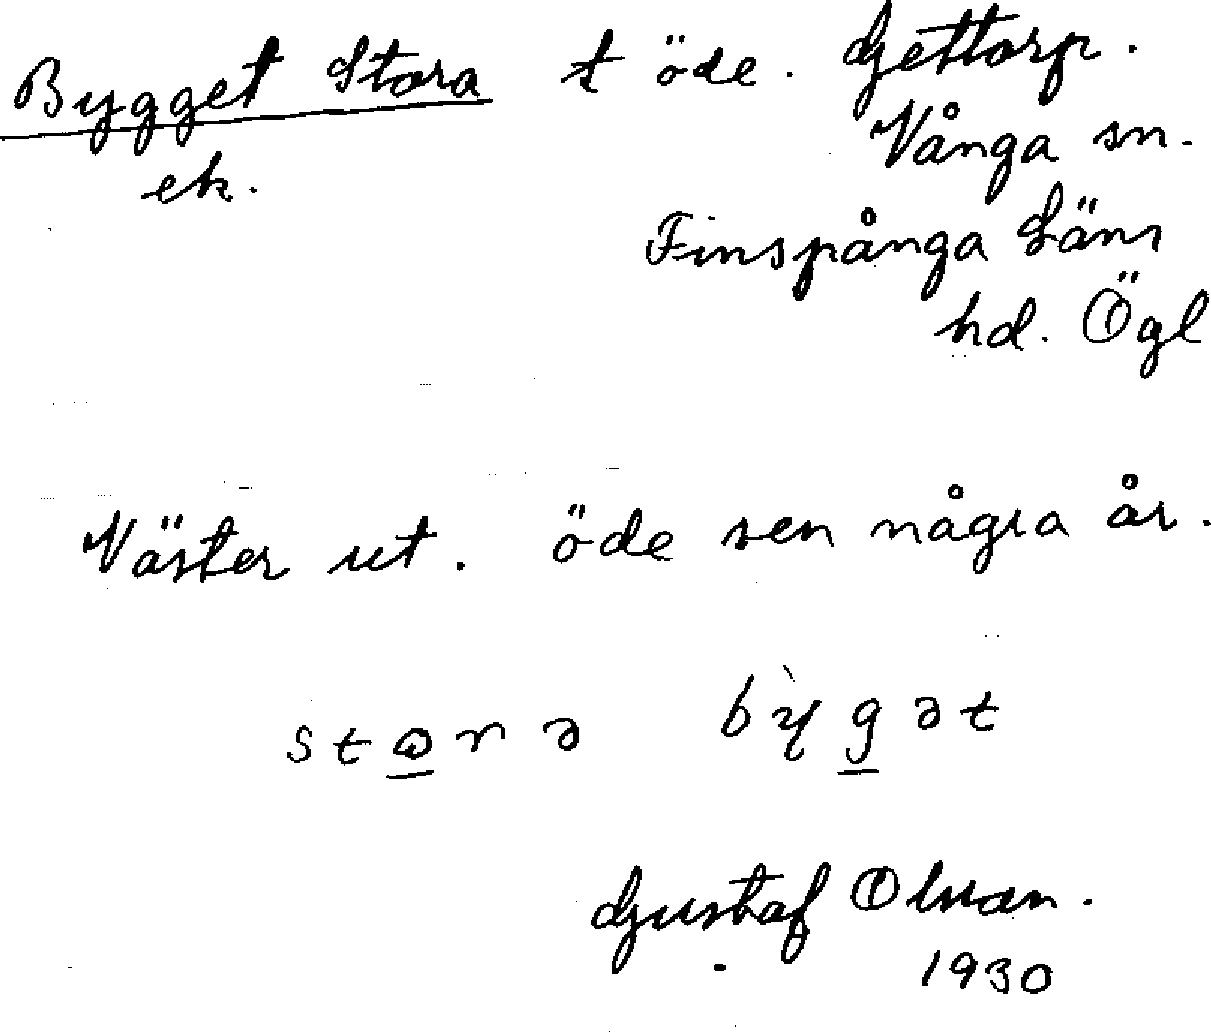 Bygget Stora t öde. Gettorp.
ek. Vånga sn.
Finspånga Läns
hd. Ögl
Väster ut. öde sen några år.
Gustaf Olsson.
1930